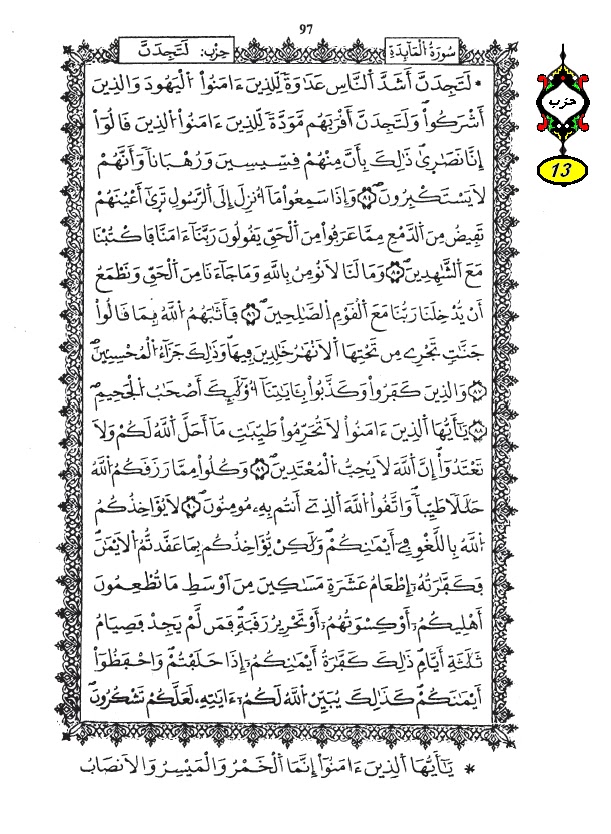 97
سُورَةُ الْمَآئِدَةِ
حِزْب: لَتَجِدَنَّ
• لَتَجِدَنَّ أَشَدَّ اَلنَّاسِ عَدَاوَةً لِّلذِينَ ءَامَنُواْ اُلْيَهُودَ وَالذِينَ
أَشْرَكُواْ وَلَتَجِدَنَّ أَقْرَبَهُم مَّوَدَّةً لِّلذِينَ ءَامَنُواْ اُلذِينَ قَالُواْ
إِنَّا نَصَٰرَىٰ ذَٰلِكَ بِأَنَّ مِنْهُمْ قِسِّيسِينَ وَرُهْبَاناً وَأَنَّهُمْ
لَا يَسْتَكْبِرُونَ ٨٤ وَإِذَا سَمِعُواْ مَآ أُنزِلَ إِلَى اَلرَّسُولِ تَرَىٰٓ أَعْيُنَهُمْ
تَفِيضُ مِنَ اَلدَّمْعِ مِمَّا عَرَفُواْ مِنَ اَلْحَقِّ يَقُولُونَ رَبَّنَآ ءَامَنَّا فَاكْتُبْنَا
مَعَ اَلشَّٰهِدِينَ ٨٥ وَمَا لَنَا لَا نُومِنُ بِاللَّهِ وَمَا جَآءَنَا مِنَ اَلْحَقِّ وَنَطْمَعُ
أَنْ يُّدْخِلَنَا رَبُّنَا مَعَ اَلْقَوْمِ اِلصَّٰلِحِينَ ٨٦ فَأَثَٰبَهُمُ اُللَّهُ بِمَا قَالُواْ
جَنَّٰتٍ تَجْرِي مِن تَحْتِهَا اَلْأَنْهَٰرُ خَٰلِدِينَ فِيهَا وَذَٰلِكَ جَزَآءُ اُلْمُحْسِنِينَ
٨٧ وَالذِينَ كَفَرُواْ وَكَذَّبُواْ بِـَٔايَٰتِنَآ أُوْلَٰٓئِكَ أَصْحَٰبُ اُلْجَحِيمِ
٨٨ يَٰٓأَيُّهَا اَلذِينَ ءَامَنُواْ لَا تُحَرِّمُواْ طَيِّبَٰتِ مَآ أَحَلَّ اَللَّهُ لَكُمْ وَلَا
تَعْتَدُوٓاْ إِنَّ اَللَّهَ لَا يُحِبُّ اُلْمُعْتَدِينَ ٨٩ وَكُلُواْ مِمَّا رَزَقَكُمُ اُللَّهُ
حَلَٰلًا طَيِّباً وَاتَّقُواْ اُللَّهَ اَلذِيٓ أَنتُم بِهِۦ مُومِنُونَ ٩٠ لَا يُؤَاخِذُكُمُ
اُللَّهُ بِاللَّغْوِ فِيٓ أَيْمَٰنِكُمْ وَلَٰكِنْ يُّؤَاخِذُكُم بِمَا عَقَّدتُّمُ اُلْأَيْمَٰنَ
فَكَفَّٰرَتُهُۥٓ إِطْعَامُ عَشَرَةِ مَسَٰكِينَ مِنَ اَوْسَطِ مَا تُطْعِمُونَ
أَهْلِيكُمُۥٓ أَوْ كِسْوَتُهُمُۥٓ أَوْ تَحْرِيرُ رَقَبَةٍ فَمَن لَّمْ يَجِدْ فَصِيَامُ
ثَلَٰثَةِ أَيَّامٍ ذَٰلِكَ كَفَّٰرَةُ أَيْمَٰنِكُمُۥٓ إِذَا حَلَفْتُمْ وَاحْفَظُوٓاْ
أَيْمَٰنَكُمْ كَذَٰلِكَ يُبَيِّنُ اُللَّهُ لَكُمُۥٓ ءَايَٰتِهِۦ لَعَلَّكُمْ تَشْكُرُونَ
* يَٰٓأَيُّهَا اَلذِينَ ءَامَنُوٓاْ إِنَّمَا اَلْخَمْرُ وَالْمَيْسِرُ وَالْأَنصَابُ
حزب
13